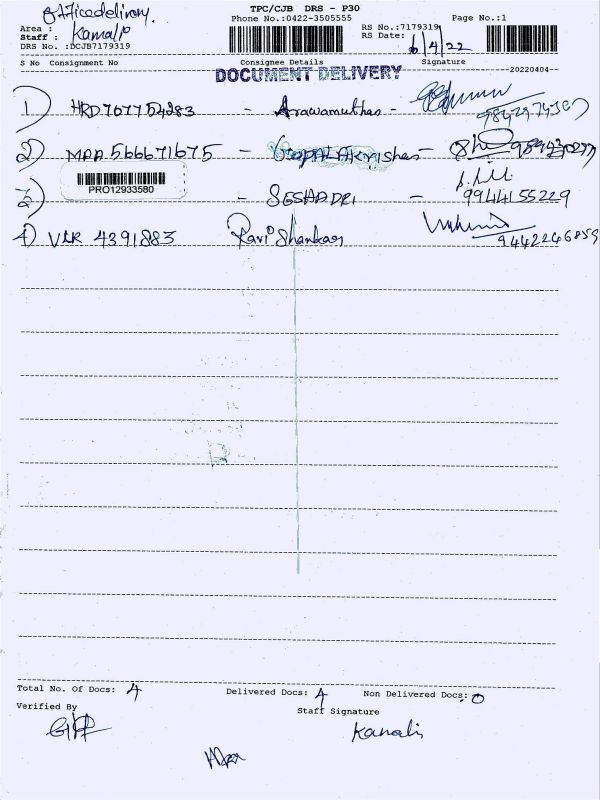 Officedelivery.
TPC/CJB DRS - P30
Phone No.:0422-3505555
RS No.:7179319
Page No.:1
Area :
Staff : Kamal
RS Date: 6/4/22
DRS No. :DCJB7179319
S No Consignment No Consignee Details Signature
DOCUMENT DELIVERY 20220404
1) HRD767754983 - Aravamuthan -
2) MAA 566671675 - Gopalakrishan -
3) PRO12933580 - SESHADRI - 9944155229
4) VLR 4391883 Ravi Shankar 9442246859
Total No. Of Docs: 4 Delivered Docs: 4 Non Delivered Docs: 0
Verified By Staff Signature